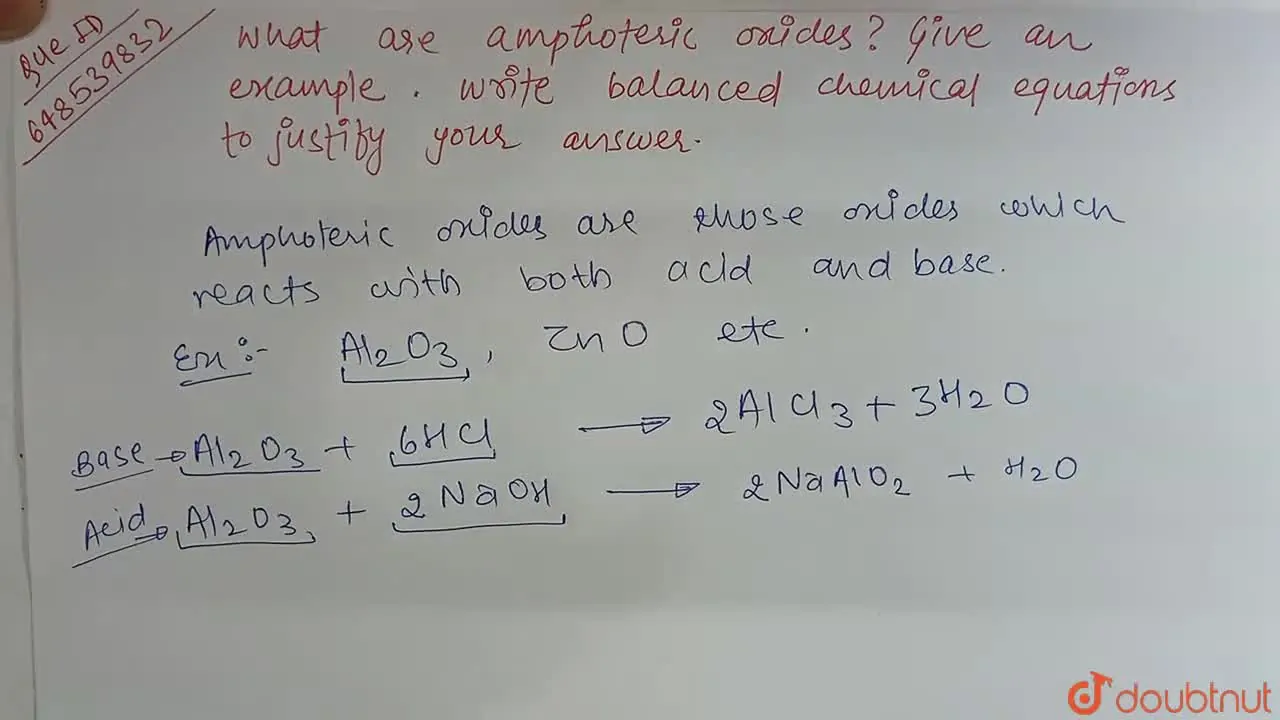 Que ID
648539832
What are amphoteric oxides? Give an
example. write balanced chemical equations
to justify your answer.
Amphoteric oxides are those oxides which
reacts with both acid and base.
Ex:- Al2O3, ZnO etc.
Base → Al2O3 + 6HCl → 2AlCl3 + 3H2O
Acid → Al2O3 + 2NaOH → 2NaAlO2 + H2O
doubtnut